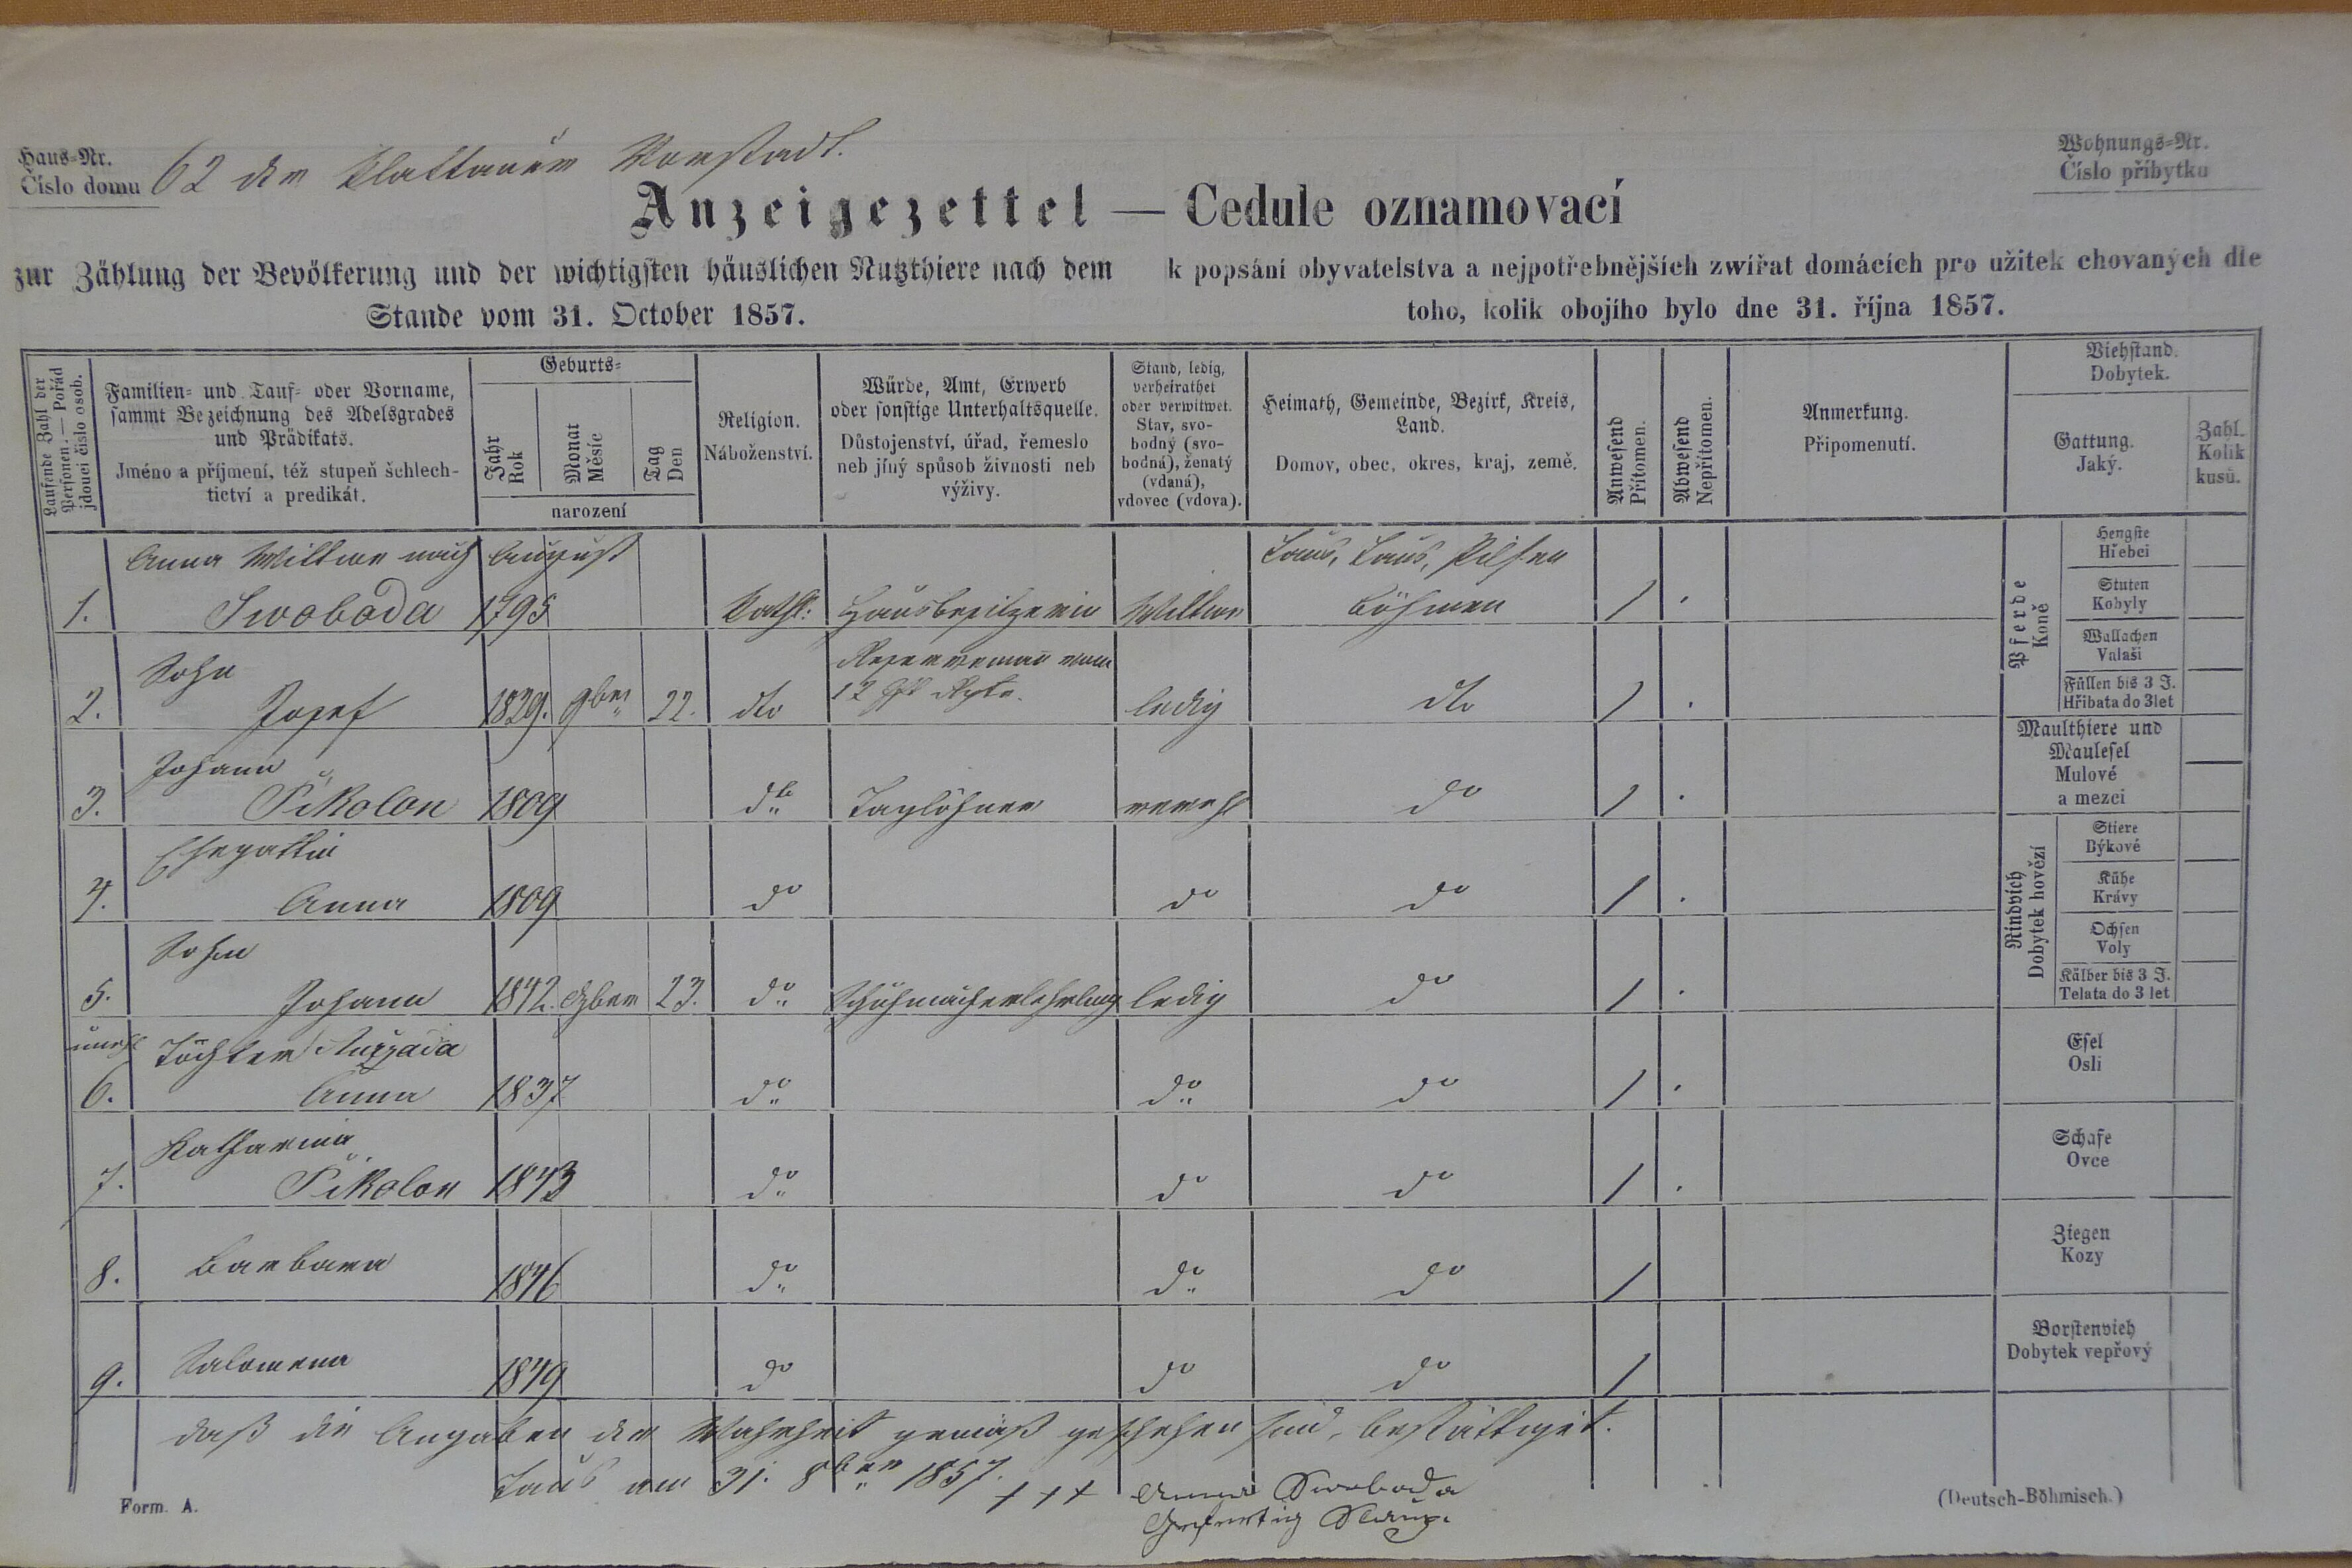 Haus-Nr.
Číslo domu 62 der Klattauer Vorstadt.
Wohnungs-Nr.
Číslo příbytku
Anzeigezettel — Cedule oznamovací
zur Zählung der Bevölkerung und der wichtigsten häuslichen Nutzthiere nach dem
Stande vom 31. October 1857.
k popsání obyvatelstva a nejpotřebnějších zwířat domácích pro užitek chovaných dle
toho, kolik obojího bylo dne 31. října 1857.
Laufende Zahl der
Personen. — Pořád
jdoucí číslo osob.
Familien- und Tauf- oder Vorname,
sammt Bezeichnung des Adelsgrades
und Prädikats.
Jméno a příjmení, též stupeň šchlech-
tictví a predikát.
Geburts-
Jahr
Rok
Monat
Měsíc
Tag
Den
narození
Religion.
Náboženství.
Würde, Amt, Erwerb
oder sonstige Unterhaltsquelle.
Důstojenství, úřad, řemeslo
neb jíný spůsob živnosti neb
výživy.
Stand, ledig,
verheirathet
oder verwitwet.
Stav, svo-
bodný (svo-
bodná), ženatý
(vdaná),
vdovec (vdova).
Heimath, Gemeinde, Bezirk, Kreis,
Land.
Domov, obec, okres, kraj, země.
Anwesend
Přítomen.
Abwesend
Nepřítomen.
Anmerkung.
Připomenutí.
Viehstand.
Dobytek.
Gattung.
Jaký.
Zahl.
Kolik
kusů.
Anna Wittwe nach August Taus, Taus, Pilsen
1. Swoboda 1795 Kath: Hausbesitzerin Wittwe Böhmen / .
Sohn Reservemañ vom
2. Josef 1829. 9ber 22. dto 12 ledig dto / .
Johann
3. Pikolon 1809 dto Taglöhner vereh do / .
Ehegattin
4. Anna 1809 do do do / .
Sohn
5. Johann 1842. Xber 23. do Schuhmacherlehrling ledig do / .
uneh Töchter
6. Anna 1837 do do do / .
Katharina
7. Pikolon 1843 do do do / .
8. Barbara 1846 do do do /
9. Salomena 1849 do do do /
Pferde
Koně
Hengste
Hřebci
Stuten
Kobyly
Wallachen
Valaši
Füllen bis 3 J.
Hříbata do 3 let
Maulthiere und
Maulesel
Mulové
a mezci
Rindvieh
Dobytek hovězí
Stiere
Býkové
Kühe
Krávy
Ochsen
Voly
Kälber bis 3 J.
Telata do 3 let
Esel
Osli
Schafe
Ovce
Ziegen
Kozy
Borstenvieh
Dobytek vepřový
daß die Angaben der Wahrheit gemäß geschehen sind, bestättiget.
Taus am 31. 8ber 1857. + + + Anna Swoboda
Form. A.
(Deutsch-Böhmisch.)